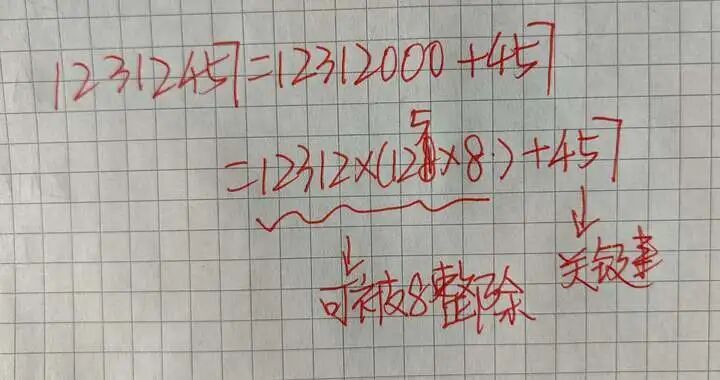 12312457=12312000+457
=12312×(125×8)+457
可被8整除
关键